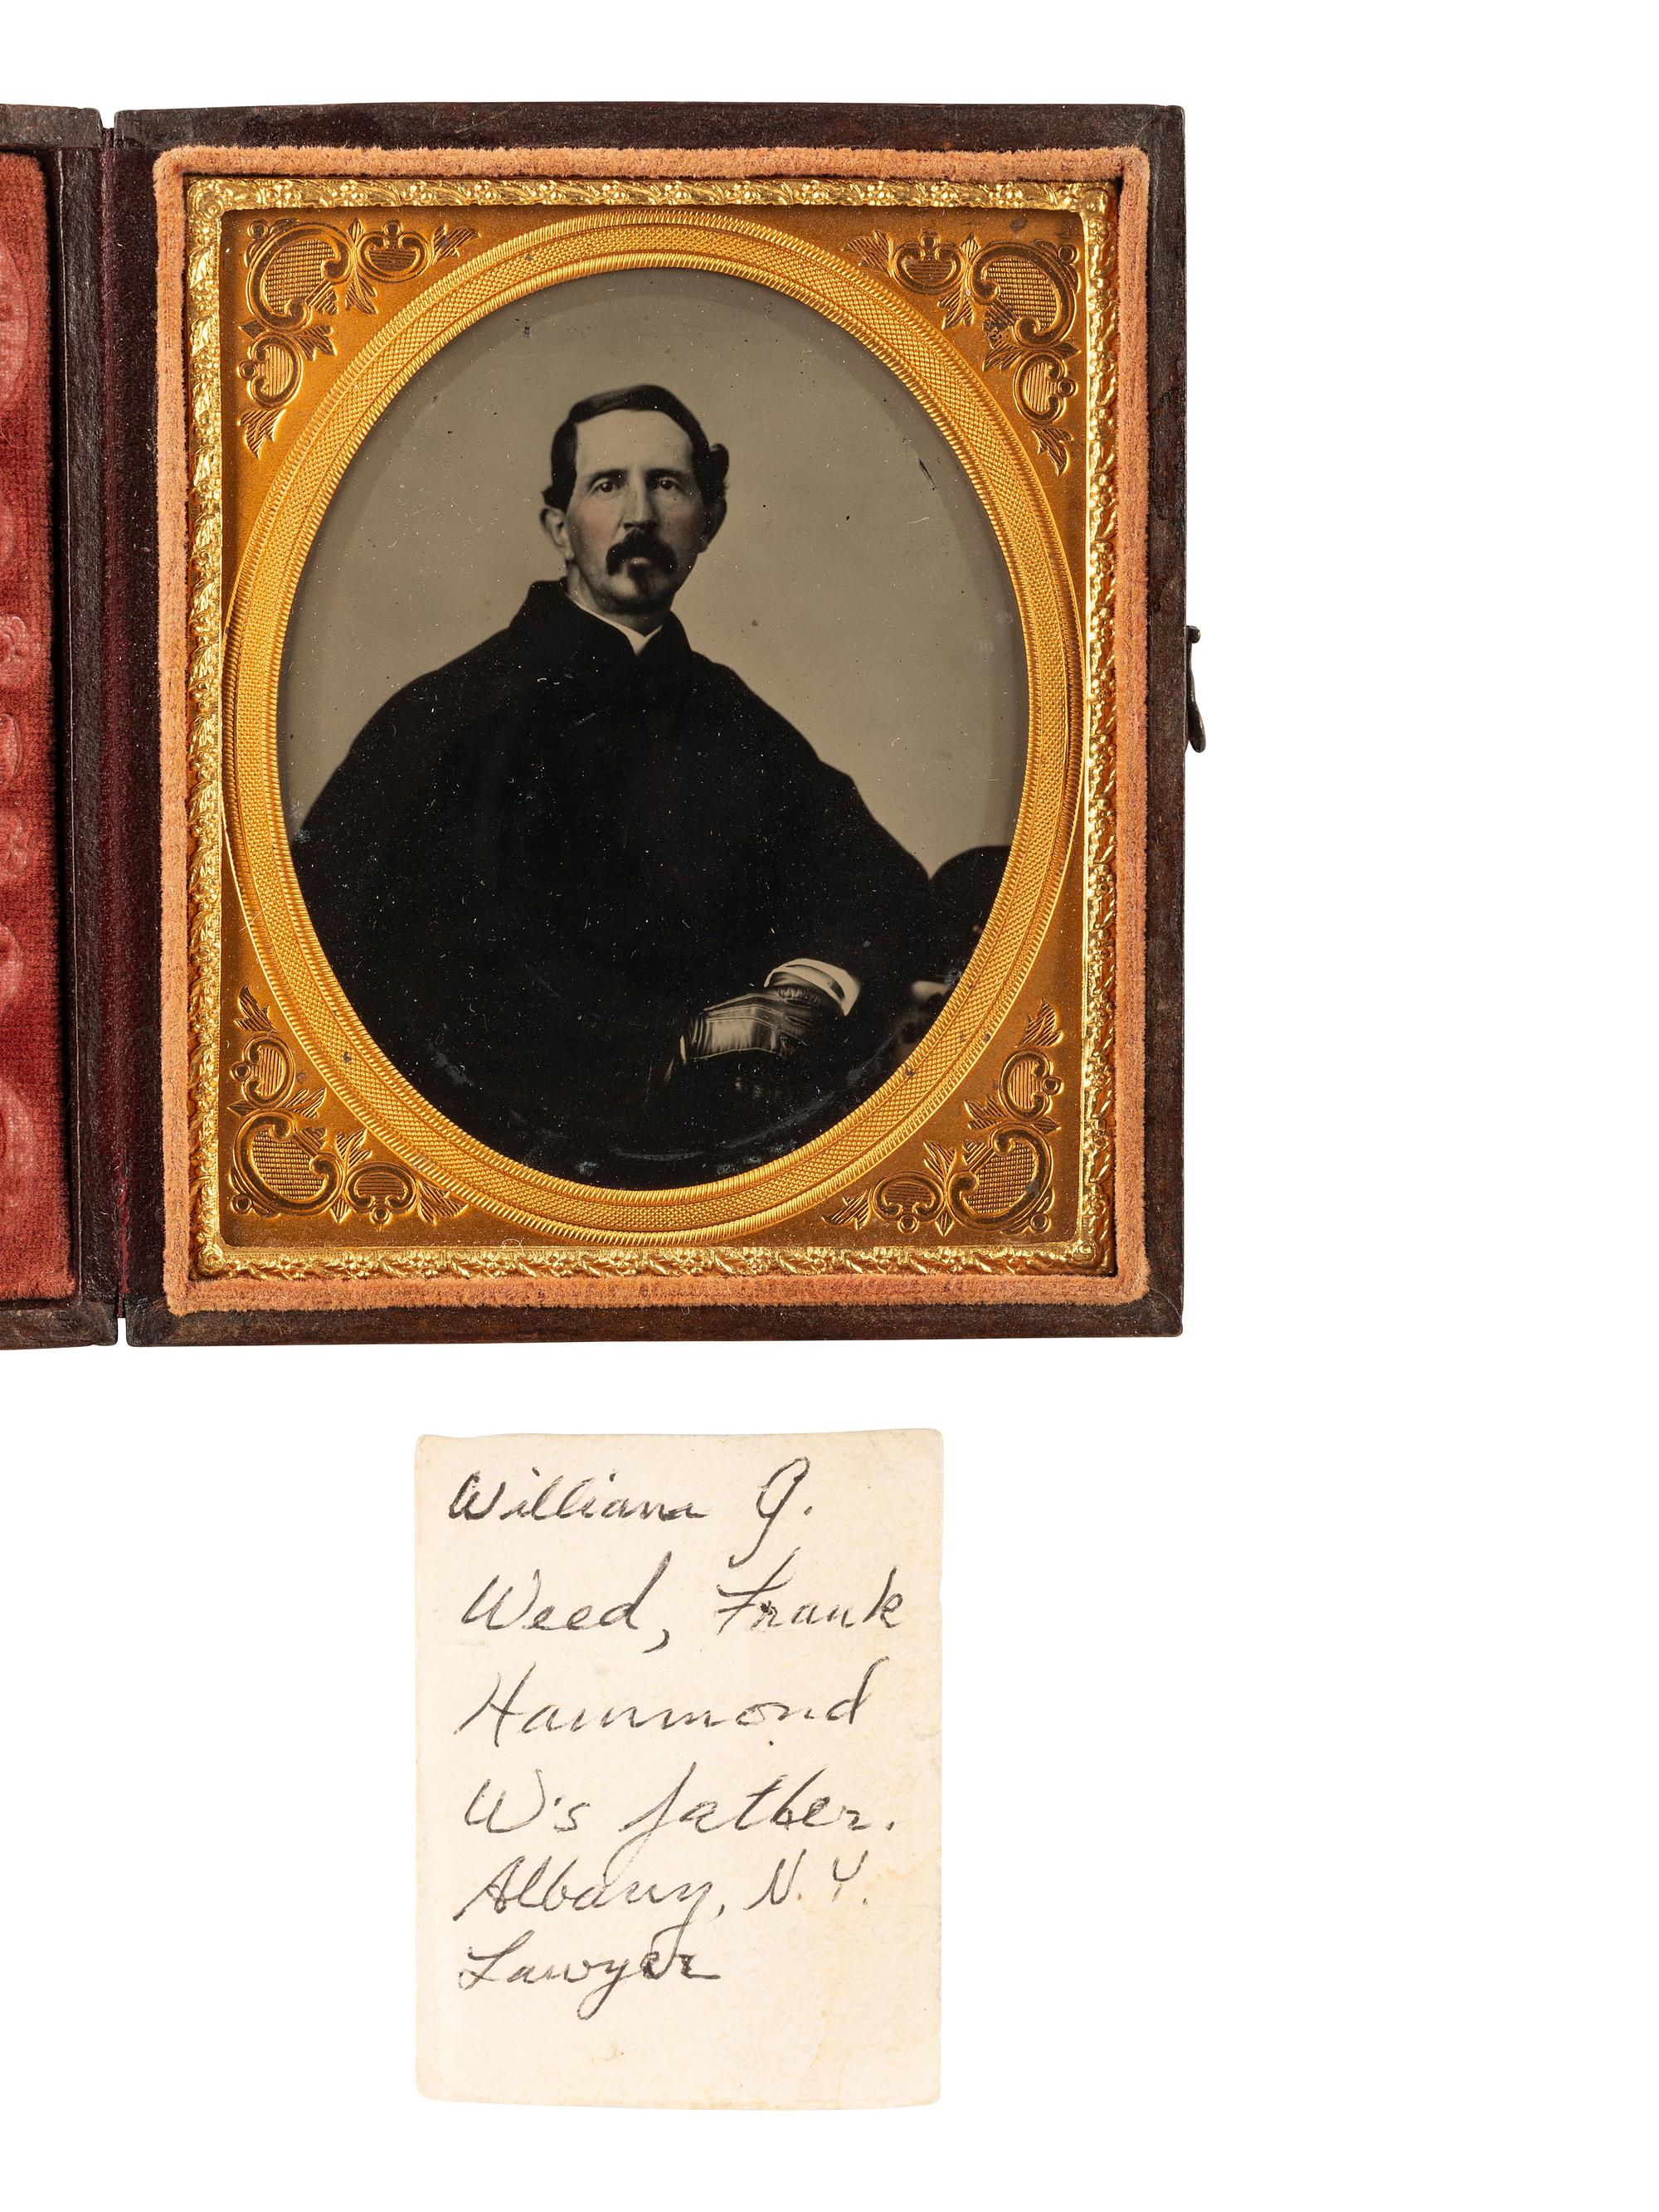 William G.
Weed, Frank
Hammond
W's father.
Albany, N.Y.
Lawyer